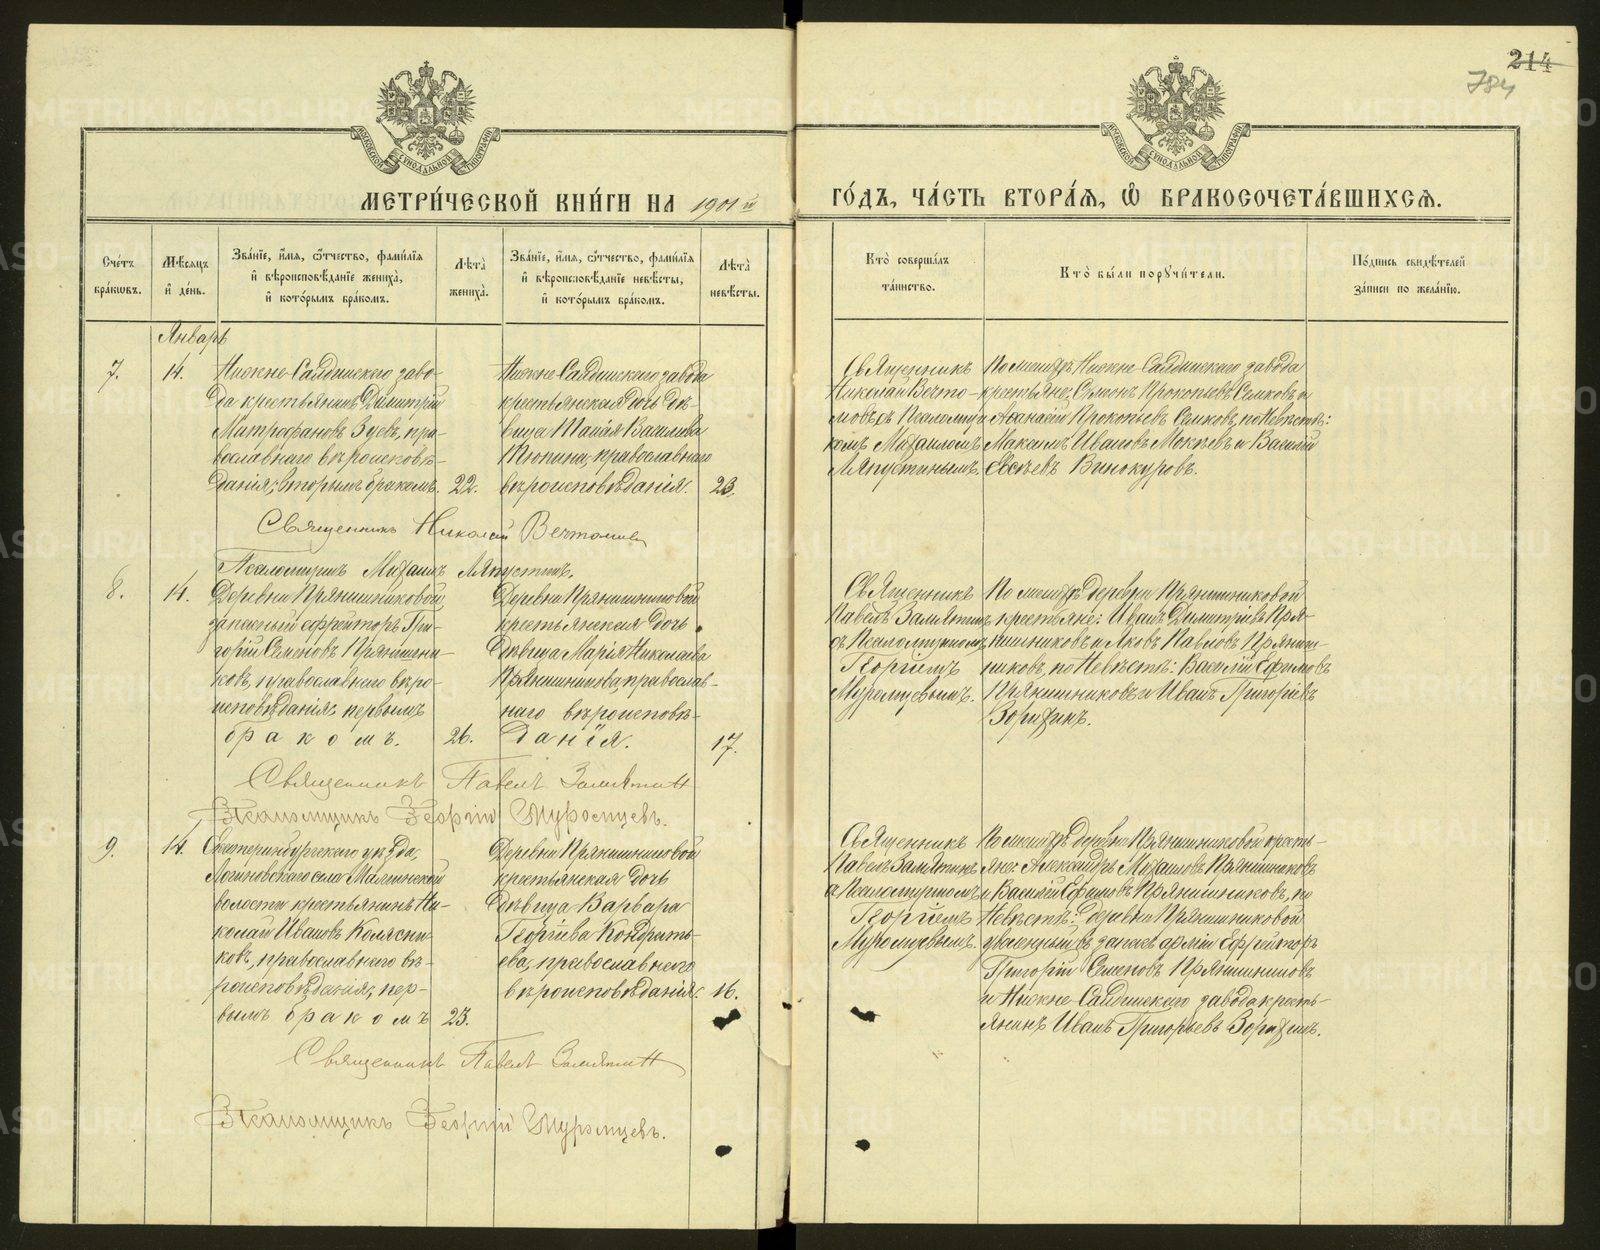 214
784
МЕТРИ́ЧЕСКОЙ КНИ́ГИ НА 1901й ГО́ДЪ, ЧА́СТЬ ВТОРА́Я, Ѡ БРАКОСОЧЕТА́ВШИХСЯ.
Сче́тъ
бра́ковъ.
Мѣ́сяцъ
и де́нь.
Зва́нїе, и́мя, ѻ҆́тчество, фами́лїя
и вѣроисповѣ́данїе жениха̀,
и кото́рымъ бра́комъ.
Лѣта̀
жениха̀.
Зва́нїе, и́мя, ѻ҆́тчество, фами́лїя
и вѣроисповѣ́данїе невѣ́сты,
и кото́рымъ бра́комъ.
Лѣта̀
невѣ́сты.
Кто̀ соверша́лъ
та́инство.
Кто̀ бы́ли поручи́тели.
По́дпись свидѣ́телей
за́писи по жела́нїю.
Январь
7.
14.
Нижне-Салдинскаго заво-
да крестьянинъ Димитрій
Митрофановъ Зуевъ, пра-
вославнаго вѣроисповѣ-
данія, вторымъ бракомъ.
22.
Нижне-Салдинскаго завода
крестьянская дочь дѣ-
вица Таисія Василіева
Тюпина, православнаго
вѣроисповѣданія.
23.
Священникъ
Николай Вечто-
мовъ съ Псаломщи-
комъ Михаиломъ
Ляпустинымъ.
По женихѣ Нижне-Салдинскаго завода
крестьяне: Симеонъ Прокопьевъ Семковъ и
Аѳанасій Прокопьевъ Семковъ, по Невѣстѣ:
Максимъ Ивановъ Мокѣевъ и Василій
Евсѣевъ Винокуровъ.
Священникъ Николай Вечтомовъ
Псаломщикъ Михаилъ Ляпустинъ.
8.
14.
Деревни Прянишниковой,
запасный ефрейторъ Гри-
горій Семеновъ Прянишни-
ковъ, православнаго вѣро-
исповѣданія, первымъ
бракомъ.
26.
Деревни Прянишниковой
крестьянская дочь
дѣвица Марія Николаева
Прянишникова, православ-
наго вѣроисповѣ-
данія.
17.
Священникъ
Павелъ Замятинъ
съ Псаломщикомъ
Георгіемъ
Муромцевымъ.
По женихѣ деревни Прянишниковой
крестьяне: Иванъ Димитріевъ Пря-
нишниковъ и Яковъ Павловъ Пряниш-
никовъ, по Невѣстѣ: Василій Ефимовъ
Прянишниковъ и Иванъ Григоріевъ
Зорихинъ.
Священникъ Павелъ Замятинъ
Псаломщикъ Георгій Муромцевъ.
9.
14.
Екатеринбургскаго уѣзда,
Логиновскаго села Маминской
волости крестьянинъ Ни-
колай Ивановъ Колясни-
ковъ, православнаго вѣ-
роисповѣданія, пер-
вымъ бракомъ
23.
Деревни Прянишниковой
крестьянская дочь
дѣвица Варвара
Георгіева Кондрать-
ева, православнаго
вѣроисповѣданія.
16.
Священникъ
Павелъ Замятинъ
съ Псаломщикомъ
Георгіемъ
Муромцевымъ.
По женихѣ деревни Прянишниковой кресть-
яне: Александръ Михаиловъ Прянишниковъ
и Василій Ефимовъ Прянишниковъ, по
Невѣстѣ: деревни Прянишниковой
уволенный въ запасъ арміи Ефрейторъ
Григорій Семеновъ Прянишниковъ
и Нижне-Салдинскаго завода кресть-
янинъ Иванъ Григорьевъ Зорихинъ.
Священникъ Павелъ Замятинъ
Псаломщикъ Георгій Муромцевъ.